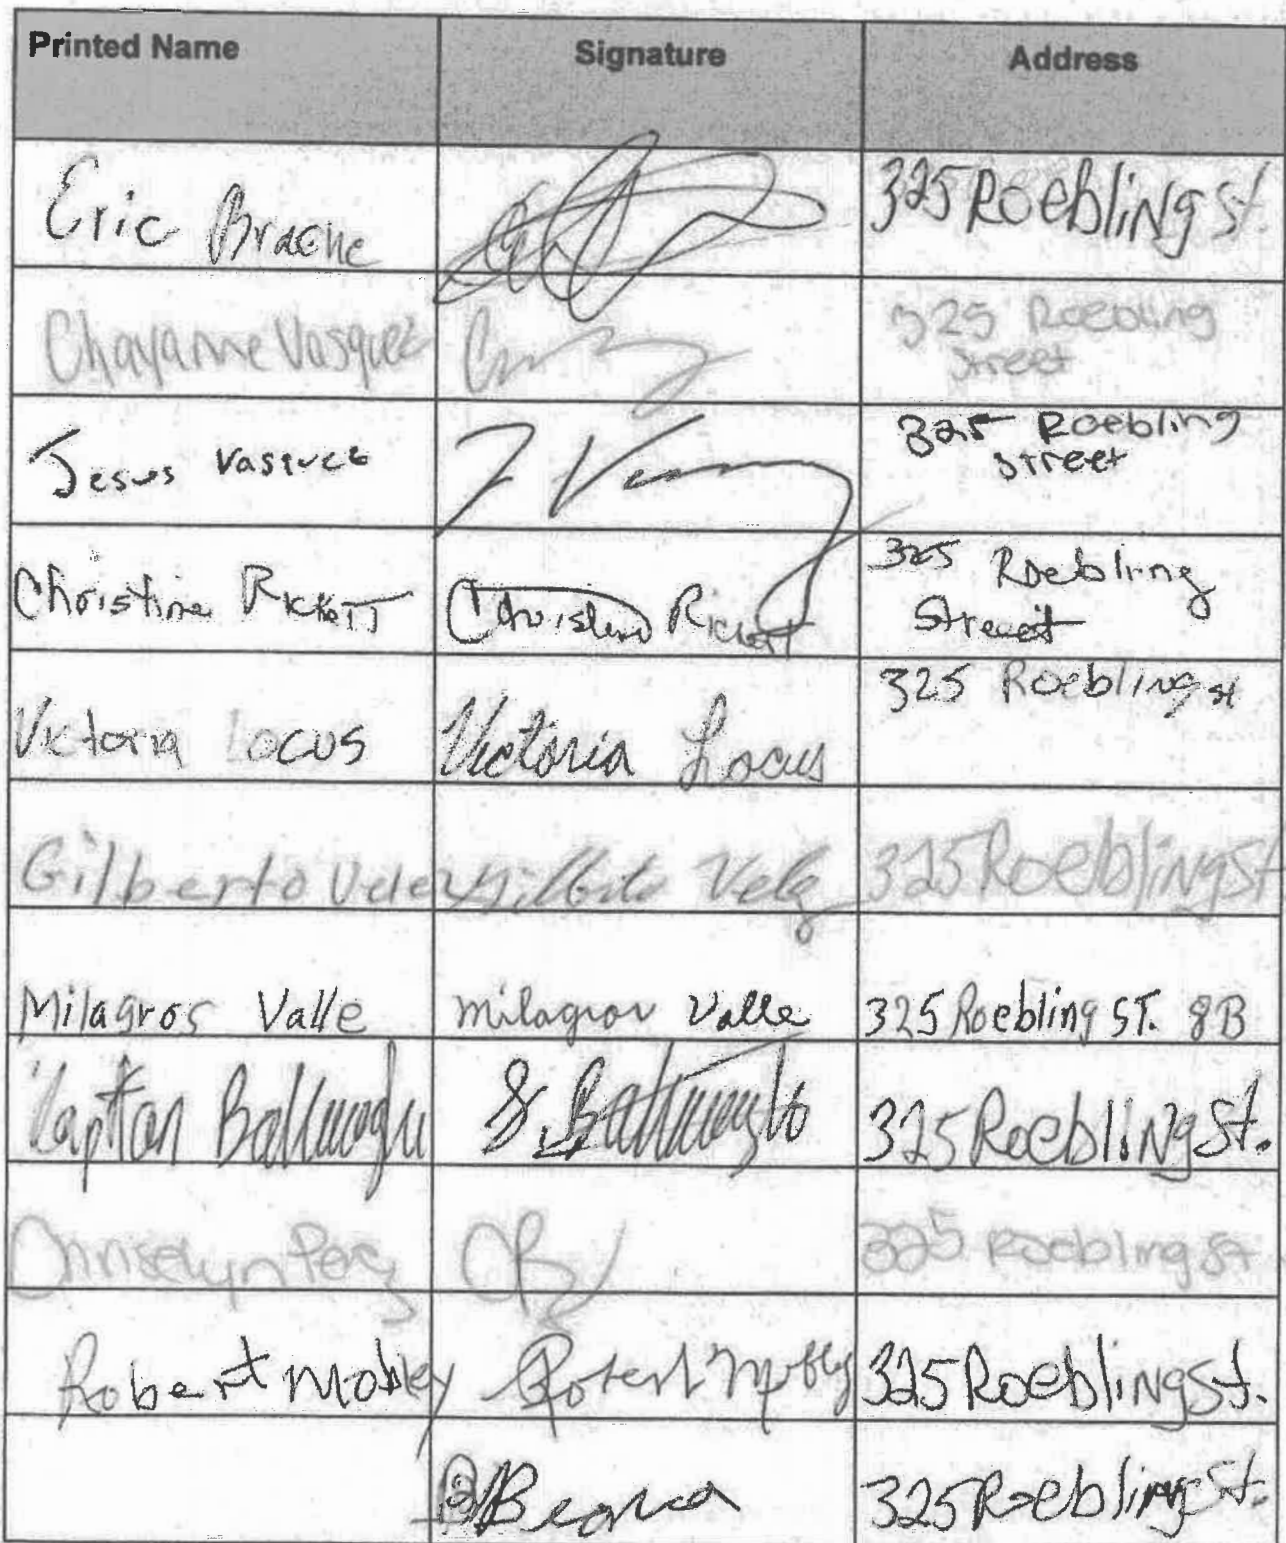 Printed Name Signature Address
Eric Brache 325 Roebling St.
Chayanne Vasquez 325 Roebling
Street
Jesus Vasquez J V 325 Roebling
Street
Christine Rickett Christine Rickett 325 Roebling
Street
Victoria Locus Victoria Locus 325 Roebling st
Gilberto Velez Gilberto Velez 325 Roebling St
Milagros Valle Milagros Valle 325 Roebling ST. 8B
325 Roebling St.
Chriselyn Perez CP 325 Roebling St
Robert Mobley Robert Mobley 325 Roebling St.
325 Roebling St.